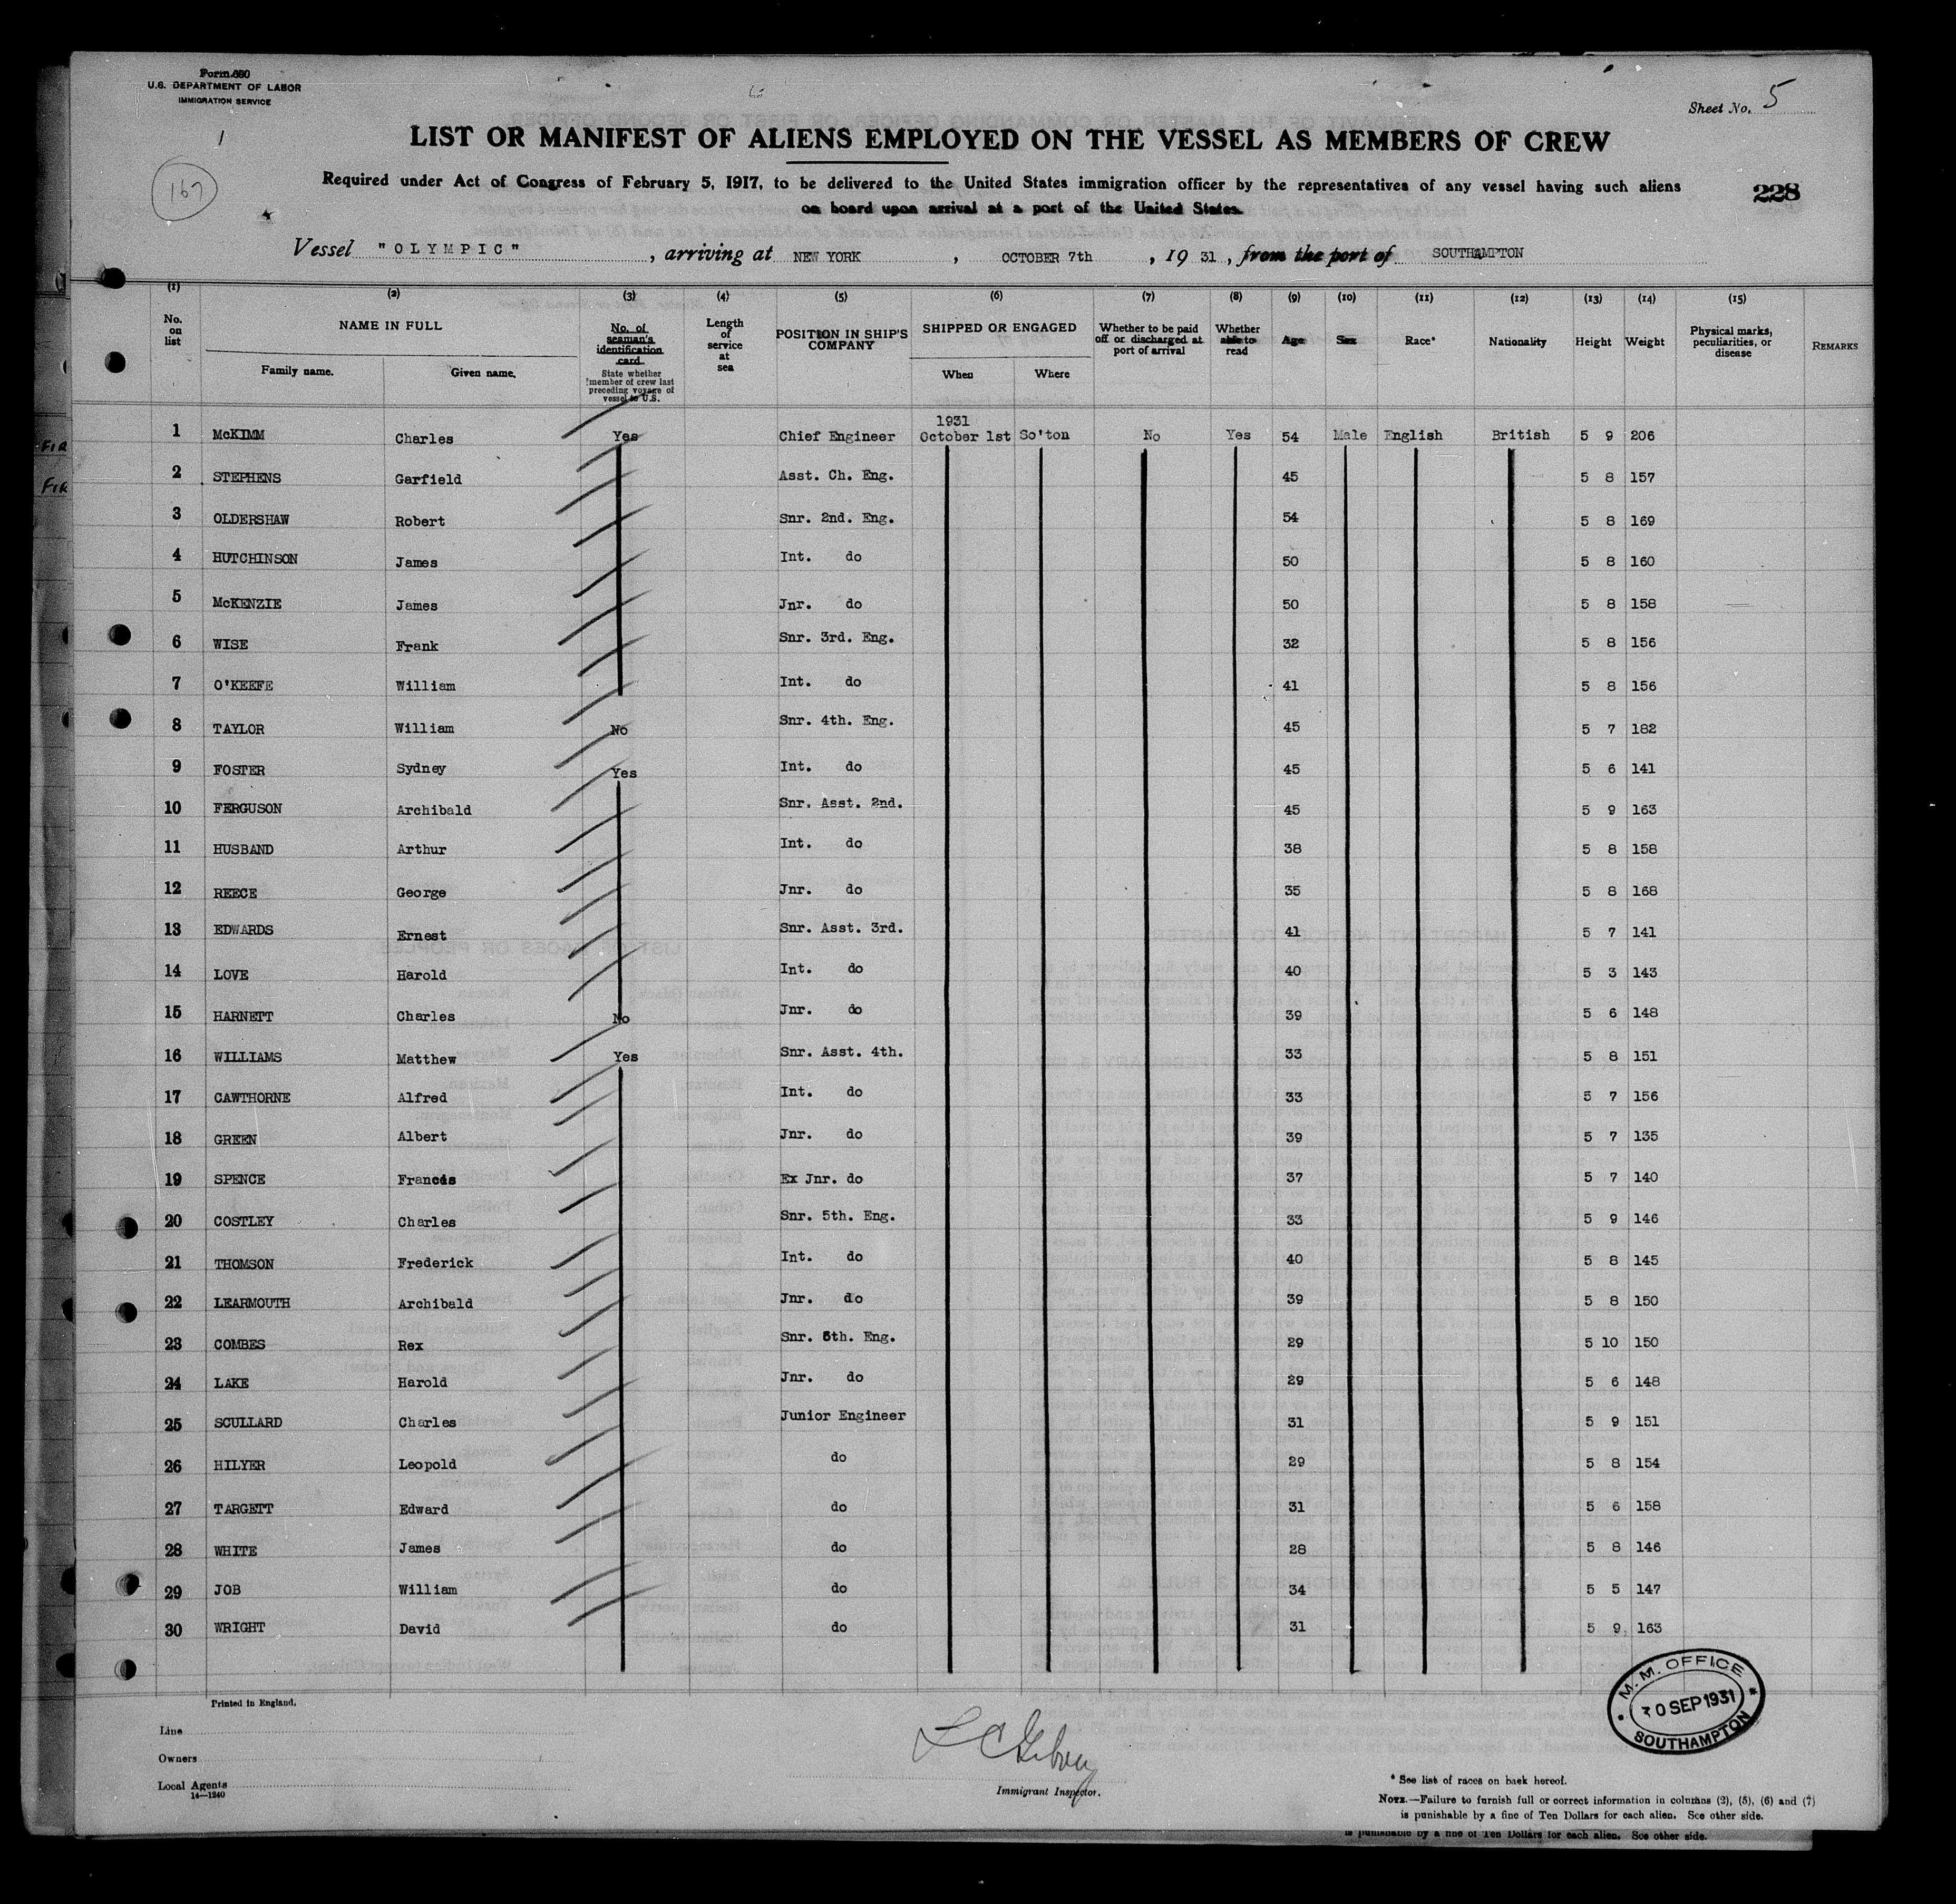 Form 680
U.S. DEPARTMENT OF LABOR
IMMIGRATION SERVICE
Sheet No. 5
1
167
LIST OR MANIFEST OF ALIENS EMPLOYED ON THE VESSEL AS MEMBERS OF CREW
Required under Act of Congress of February 5, 1917, to be delivered to the United States immigration officer by the representatives of any vessel having such aliens
on board upon arrival at a port of the United States.
228
Vessel "OLYMPIC", arriving at NEW YORK, OCTOBER 7th, 1931, from the port of SOUTHAMPTON
(1) (2) (3) (4) (5) (6) (7) (8) (9) (10) (11) (12) (13) (14) (15)
No. on list
NAME IN FULL
Family name. Given name.
No. of seaman's identification card.
State whether member of crew last preceding voyage of vessel to U.S.
Length of service at sea
POSITION IN SHIP'S COMPANY
SHIPPED OR ENGAGED
When Where
Whether to be paid off or discharged at port of arrival
Whether able to read
Age
Sex
Race*
Nationality
Height
Weight
Physical marks, peculiarities, or disease
REMARKS
1931
1 McKIMM Charles Yes Chief Engineer October 1st So'ton No Yes 54 Male English British 5 9 206
2 STEPHENS Garfield Asst. Ch. Eng. 45 5 8 157
3 OLDERSHAW Robert Snr. 2nd. Eng. 54 5 8 169
4 HUTCHINSON James Int. do 50 5 8 160
5 McKENZIE James Jnr. do 50 5 8 158
6 WISE Frank Snr. 3rd. Eng. 32 5 8 156
7 O'KEEFE William Int. do 41 5 8 156
8 TAYLOR William No Snr. 4th. Eng. 45 5 7 182
9 FOSTER Sydney Yes Int. do 45 5 6 141
10 FERGUSON Archibald Snr. Asst. 2nd. 45 5 9 163
11 HUSBAND Arthur Int. do 38 5 8 158
12 REECE George Jnr. do 35 5 8 168
13 EDWARDS Ernest Snr. Asst. 3rd. 41 5 7 141
14 LOVE Harold Int. do 40 5 3 143
15 HARNETT Charles No Jnr. do 39 5 6 148
16 WILLIAMS Matthew Yes Snr. Asst. 4th. 33 5 8 151
17 CAWTHORNE Alfred Int. do 33 5 7 156
18 GREEN Albert Jnr. do 39 5 7 135
19 SPENCE Francis Ex Jnr. do 37 5 7 140
20 COSTLEY Charles Snr. 5th. Eng. 33 5 9 146
21 THOMSON Frederick Int. do 40 5 8 145
22 LEARMOUTH Archibald Jnr. do 39 5 8 150
23 COMBES Rex Snr. 6th. Eng. 29 5 10 150
24 LAKE Harold Jnr. do 29 5 6 148
25 SCULLARD Charles Junior Engineer 31 5 9 151
26 HILYER Leopold do 29 5 8 154
27 TARGETT Edward do 31 5 6 158
28 WHITE James do 28 5 8 146
29 JOB William do 34 5 5 147
30 WRIGHT David do 31 5 9 163
Printed in England.
Line
Owners
Local Agents
14—1240
Immigrant Inspector.
M. M. OFFICE
30 SEP 1931
SOUTHAMPTON
* See list of races on back hereof.
NOTE.—Failure to furnish full or correct information in columns (2), (5), (6) and (7)
is punishable by a fine of Ten Dollars for each alien. See other side.
is punishable by a fine of Ten Dollars for each alien. See other side.